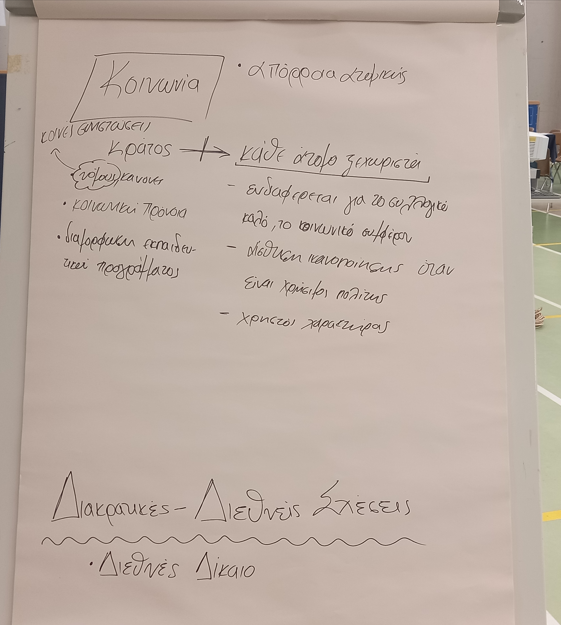 Κοινωνία
• απόρροια ατομικής
κοινές διαπιστώσεις
Κράτος → κάθε άτομο ξεχωριστά
νόμους κανόνες
• κοινωνική πρόνοια
• διαμόρφωση εκπαιδευ-
τικού προγράμματος
- ενδιαφέρεται για το συλλογικό
καλό, το κοινωνικό συμφέρον
- αίσθηση ικανοποίησης όταν
είναι χρήσιμος πολίτης
- χρηστός χαρακτήρας
Διακρατικές - Διεθνείς Σχέσεις
• Διεθνές Δίκαιο